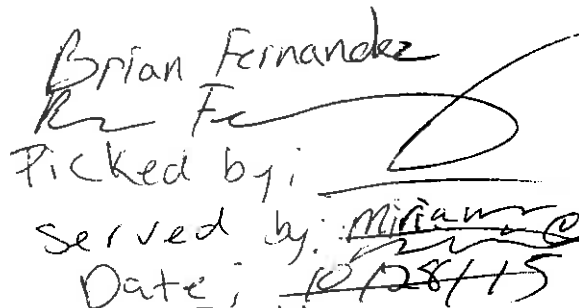 Brian Fernandez
Picked by:
served by: Miriam
Date: 10/28/15